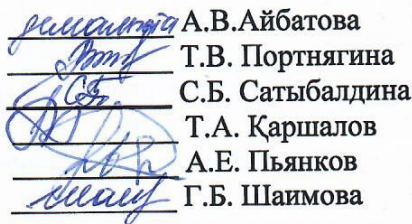 А.В.Айбатова
Т.В. Портнягина
С.Б. Сатыбалдина
Т.А. Қаршалов
А.Е. Пьянков
Г.Б. Шаимова